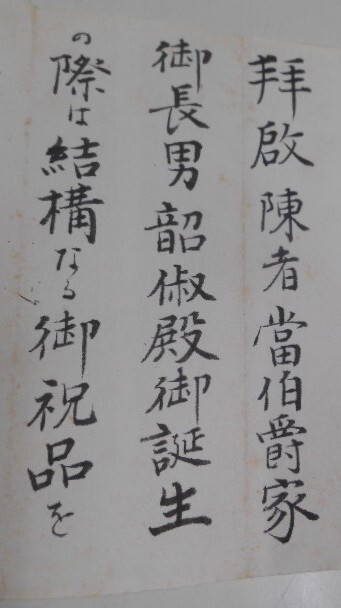 拝啓陳者當伯爵家
御長男韶俶殿御誕生
の際は結構なる御祝品を